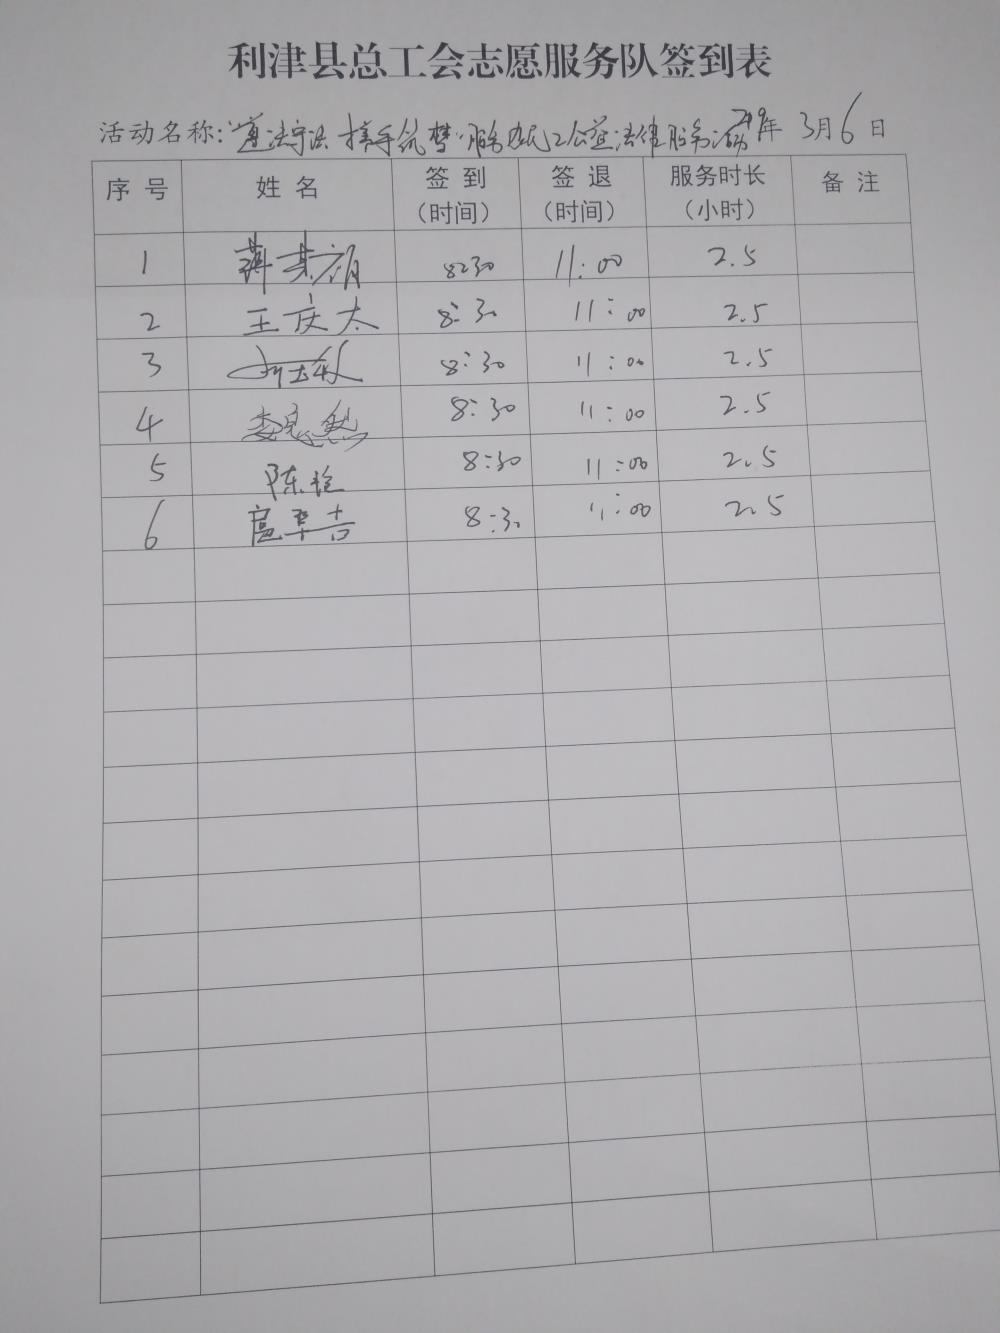 利津县总工会志愿服务队签到表
活动名称:“遵法守法 携手筑梦”服务农民工公益法律服务活动 2019年 3月6日
序号 姓名 签到(时间) 签退(时间) 服务时长(小时) 备注
1 8:30 11:00 2.5
2 王庆太 8:30 11:00 2.5
3 8:30 11:00 2.5
4 8:30 11:00 2.5
5 陈 8:30 11:00 2.5
6 8:30 11:00 2.5